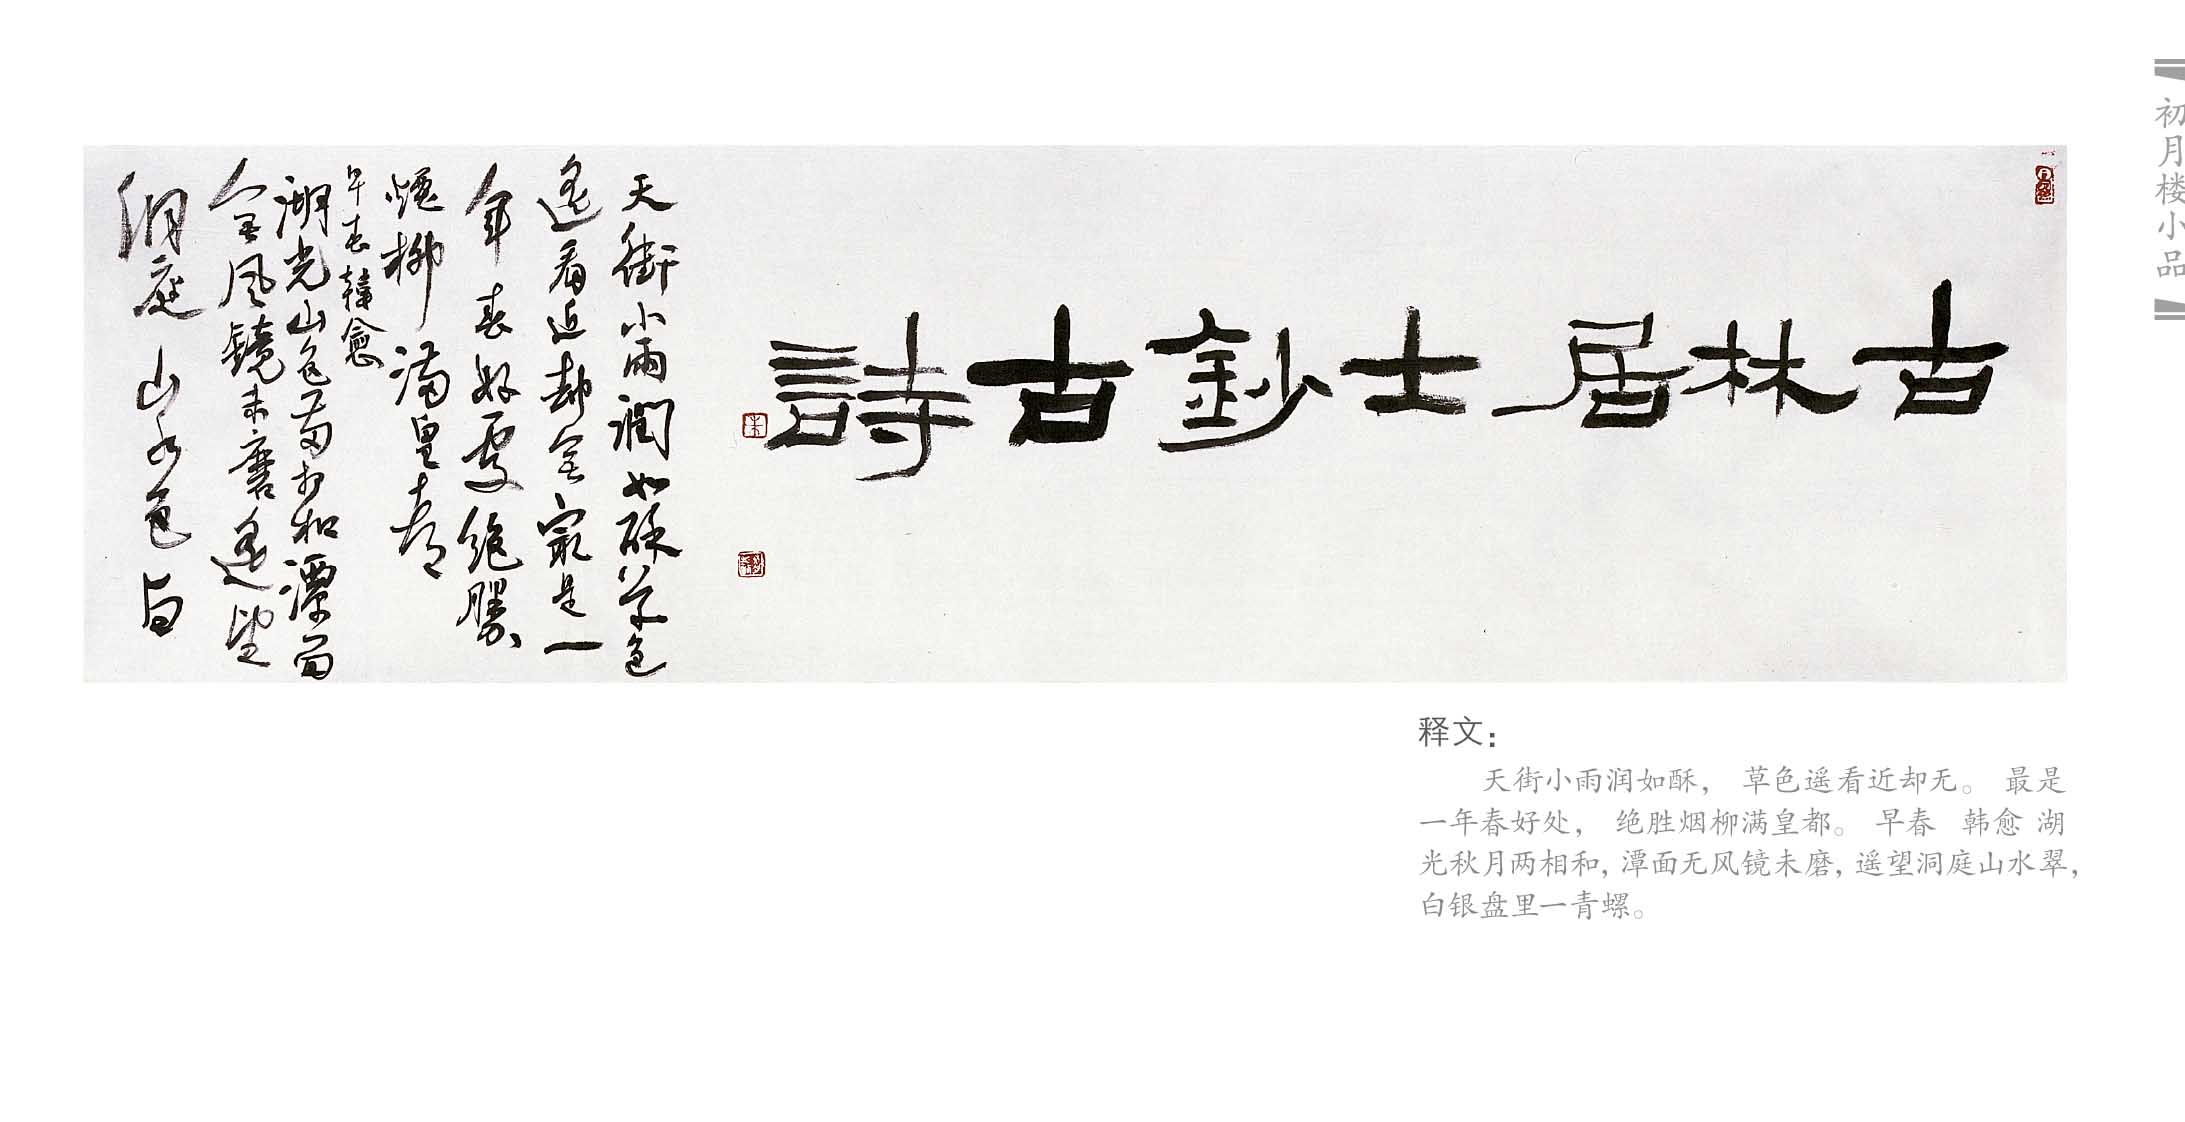 初月楼小品
古林居士鈔古詩
天街小雨潤如酥草色
遙看近却無最是一
年春好處絕勝
煙柳滿皇都
早春韓愈
湖光山色兩相和潭面
無風鏡未磨遙望
洞庭山水色白
释文：
天街小雨润如酥， 草色遥看近却无。 最是
一年春好处， 绝胜烟柳满皇都。 早春 韩愈 湖
光秋月两相和，潭面无风镜未磨，遥望洞庭山水翠，
白银盘里一青螺。